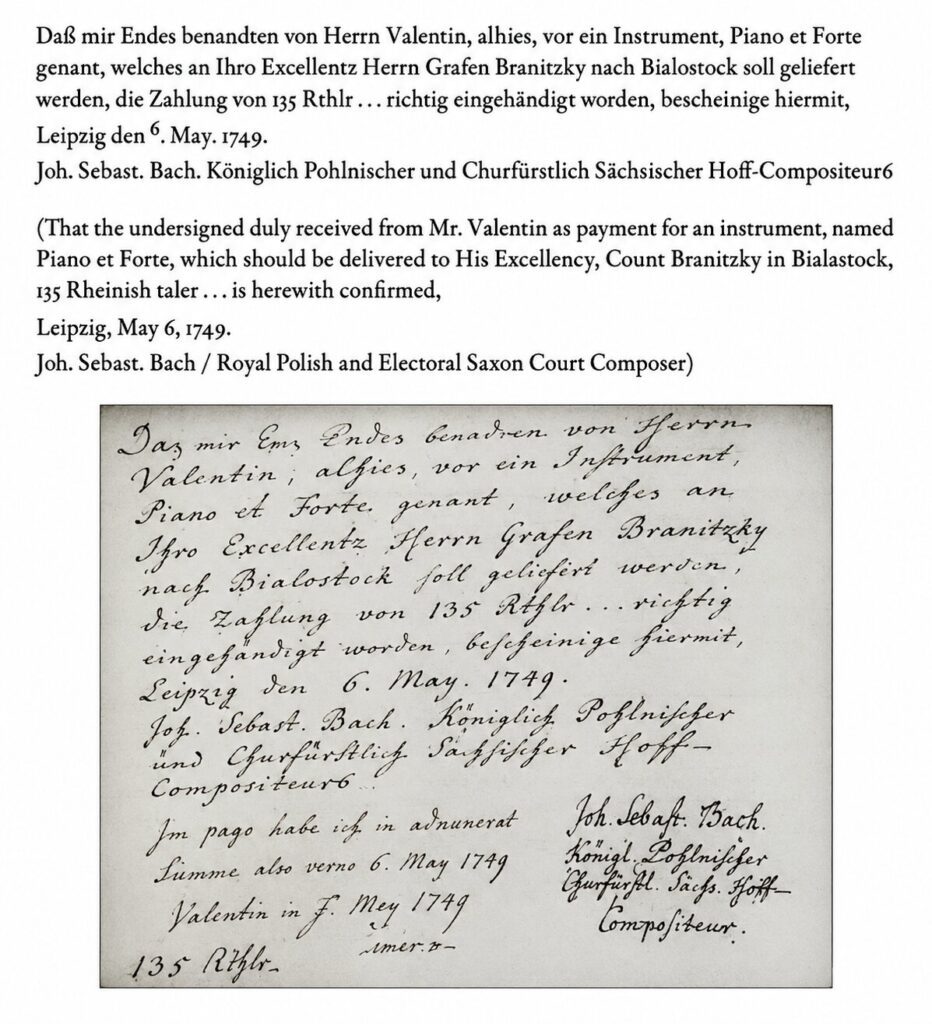 Daß mir Endes benandten von Herrn Valentin, alhies, vor ein Instrument, Piano et Forte
genant, welches an Ihro Excellentz Herrn Grafen Branitzky nach Bialostock soll geliefert
werden, die Zahlung von 135 Rthlr … richtig eingehändigt worden, bescheinige hiermit,
Leipzig den 6. May. 1749.
Joh. Sebast. Bach. Königlich Pohlnischer und Churfürstlich Sächsischer Hoff-Compositeur6
(That the undersigned duly received from Mr. Valentin as payment for an instrument, named
Piano et Forte, which should be delivered to His Excellency, Count Branitzky in Bialastock,
135 Rheinish taler … is herewith confirmed,
Leipzig, May 6, 1749.
Joh. Sebast. Bach / Royal Polish and Electoral Saxon Court Composer)
Daz mir Emz Endes benadren von Herrn
Valentin, alhies, vor ein Instrument,
Piano et Forte genant, welches an
Ihro Excellentz Herrn Grafen Branitzky
nach Bialostock soll geliefert werden,
die Zahlung von 135 Rthlr … richtig
eingehändigt worden, bescheinige hiermit,
Leipzig den 6. May. 1749.
Joh. Sebast. Bach. Königlich Pohlnischer
und Churfürstlich Sächsischer Hoff-
Compositeur6
Im pago habe ich in adnunerat
Summe also verno 6. May 1749
Valentin in F. Mey 1749
135 Rthlr
Joh. Sebast. Bach.
Königl. Pohlnischer
Churfürstl. Sächs. Hoff-
Compositeur.